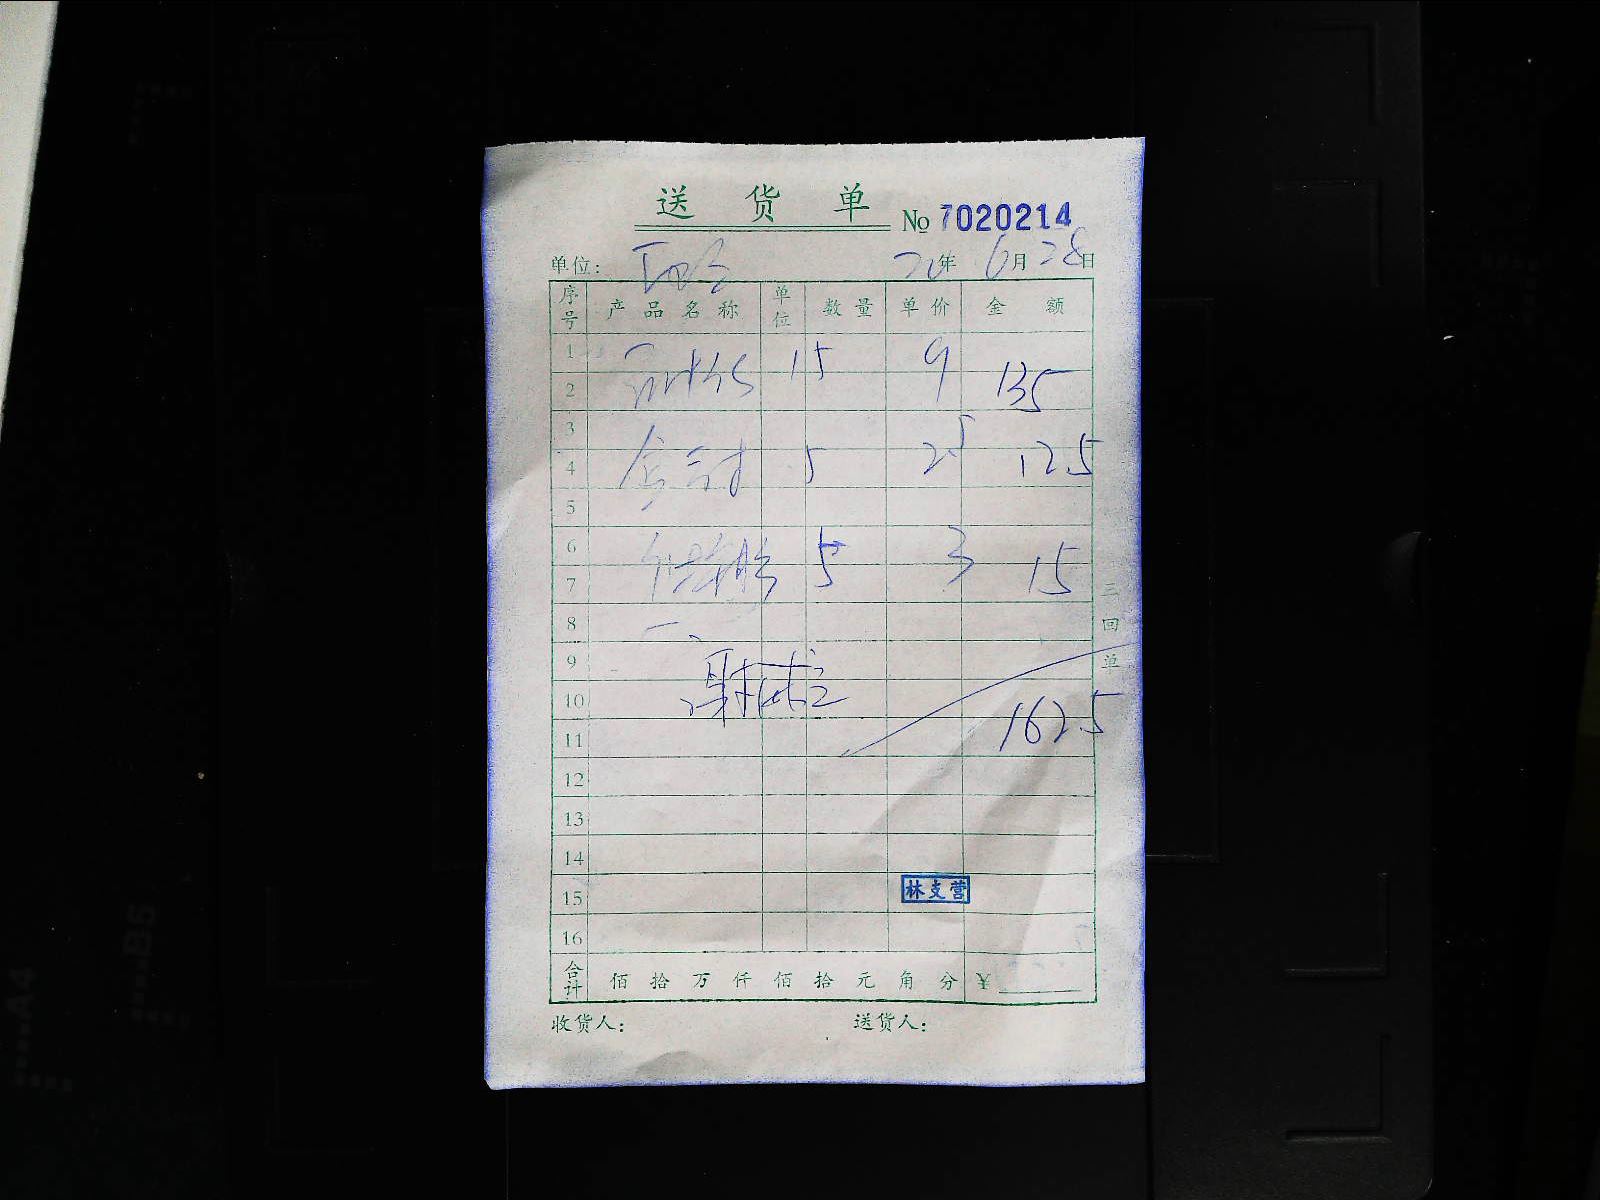 送货单 № 7020214
单位: 20年 6月 28日
序号 产品名称 单位 数量 单价 金额
1 15 9 135
2
3
4 5 2.5 12.5
5
6 5 3 15
7
8
9
10
11 162.5
12
13
14
15 林支营
16
合计 佰拾万仟佰拾元角分 ¥
收货人: 送货人:
三回单
B5
A4